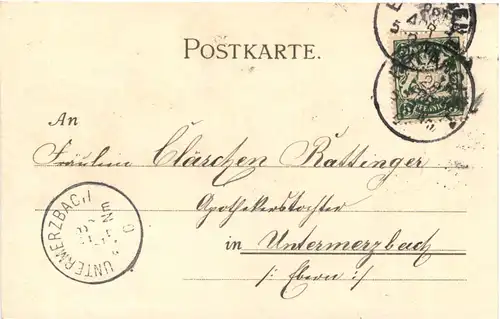 POSTKARTE.
An
Fräulein Clärchen Rattinger
Apothekerstochter
in Untermerzbach
/: Ebern :/
UNTERMERZBACH